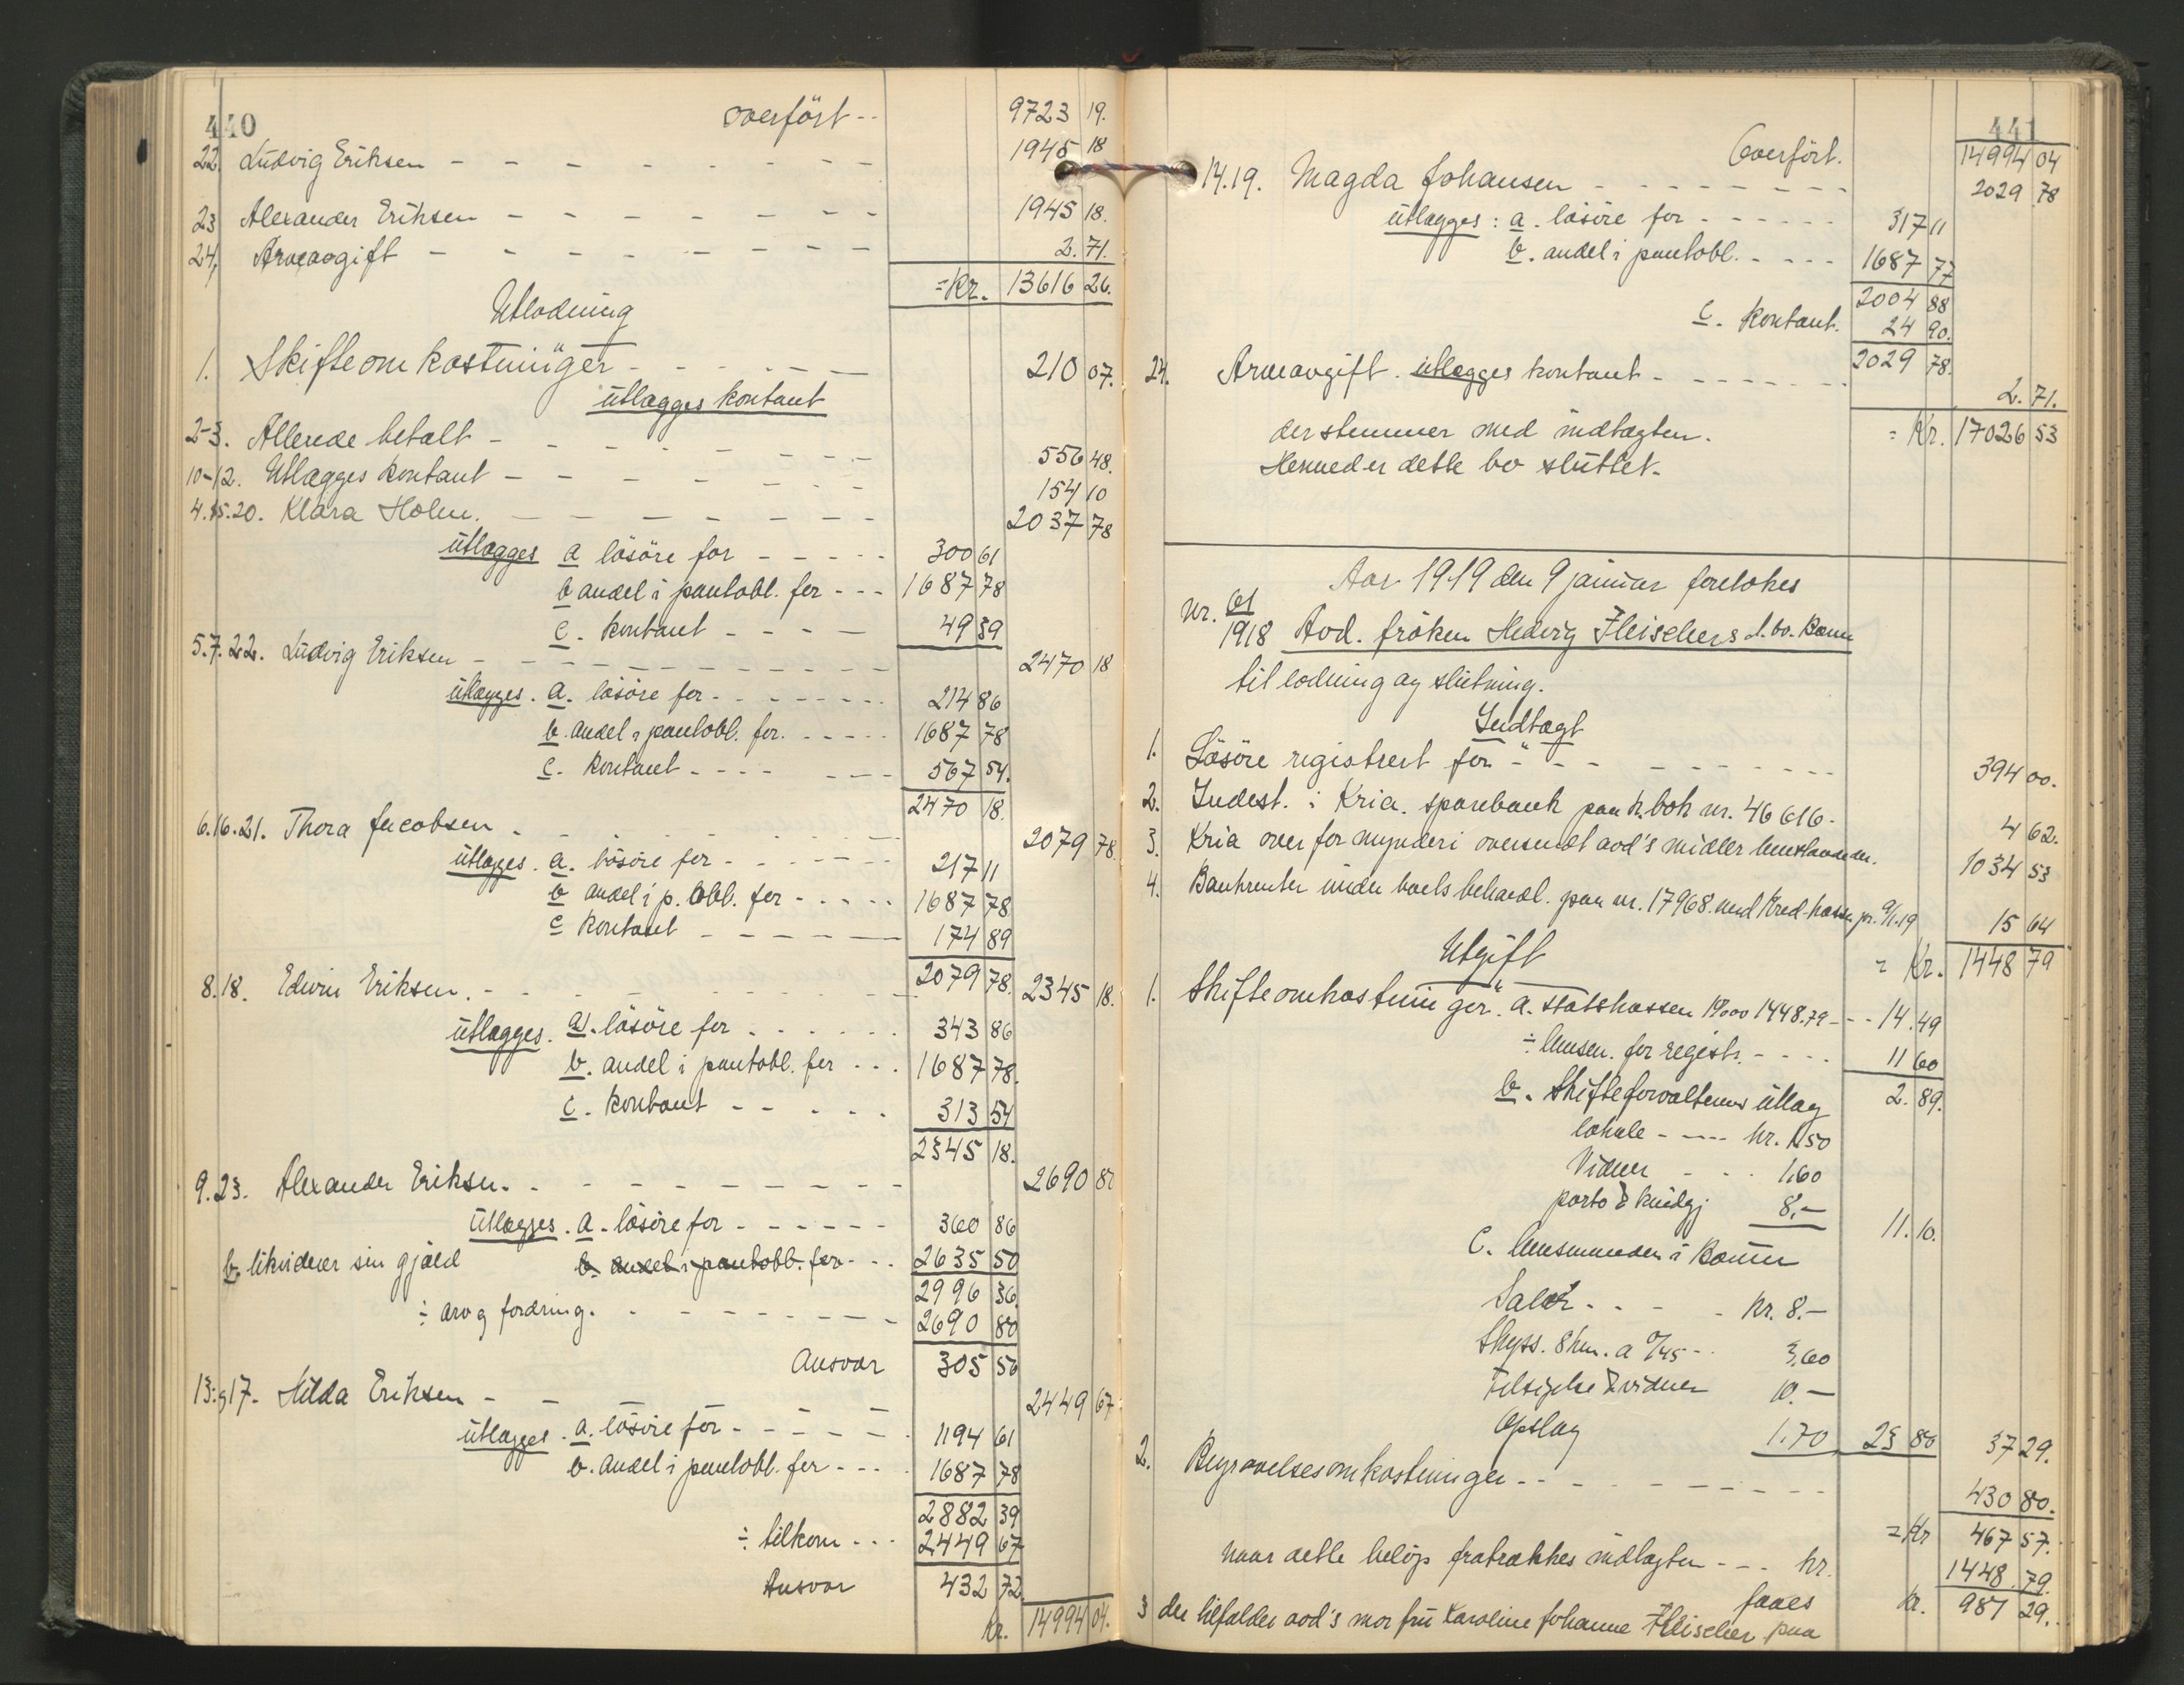 440
overfört -- 9723 19.
22. Ludvig Eriksen - - - - - - - 1945 18
23 Alexander Eriksen - - - - - - - 1945 18.
24, Arveavgift - - - - - - 2.71.
= Kr. 13616 26.
Utlodning
1. Skifteomkostninger - - - - - 210 07.
utlægges kontant
2-3. Allerede betalt - - - - - - - 556 48.
10-12. Utlægges kontant - - - - - - - 154 10
4.15.20. Klara Holm. - - - - - - 2037 78
utlægges a lösöre for - - - - - 300 61
b andel i pantobl. for - - - 1687 78
c. kontant - - - - 49 39
5.7.22. Ludvig Eriksen - - - - - - - - - - - 2470 18
utlægges. a. lösöre for - - - - - - - 214 86
b. andel i pantobl. for. - - - - - 1687 78
c. kontant - - - - - - - 567 54.
2470 18.
6.16.21. Thora Jacobsen - - - - - - - 2079 78.
utlægges. a. lösöre for - - - - - - 217 11
b andel i p. obl. for - - - - - 1687 78
c kontant - - - - - - 174 89
2079 78.
8.18. Edwin Eriksen. - - - - - - - - 2345 18.
utlægges. a). lösöre for - - - - - - 343 86
b. andel i pantobl. for - - - 1687 78.
c. kontant - - - - - 313 54
2345 18.
9.23. Alexander Eriksen. - - - - - - - - - 2690 80
utlægges. a. lösöre for - - - - - - 360 86
b. likviderer sin gjæld b. andel i pantobl. for - - - 2635 50
2996 36.
÷ arv og fordring. - - - - - - - - 2690 80
Ansvar 305 56
13.og17. Hilda Eriksen - - - - - 2449 67
utlægges. a. lösöre for - - - - - - 1194 61
b. andel i pantobl. for - - - - 1687 78
2882 39
÷ tilkom - - - 2449 67
Ansvar 432 72
Kr. 14994 04.
441
Overfört. 14994 04
14.19. Magda Johansen - - - - - - - - 2029 78
utlægges: a. lösöre for - - - - - - 317 11
b. andel i pantobl. - - - - 1687 77
2004 88
c. kontant. 24 90.
2029 78.
24. Arveavgift. utlægges kontant - - - - - - - 2.71.
= Kr. 17026 53
der stemmer med indtægten.
Hermed er dette bo sluttet.
Aar 1919 den 9 januar foretokes
nr. 61/1918 Avd. fröken Hedvig Fleischers d. bo. Bærum
til lodning og slutning.
Indtægt
1. Lösöre registrert for - - - - - - - - - - 394 00.
2. Indest. i Kria. sparebank paa k.bok nr. 46616. 4 62.
3. Kria overformynderi oversendt avd's midler 1034 53
4. Bankrenter under boets behandl. paa nr. 17968. ved Kred.kassen pr. 9/1.19 15 64
= Kr. 1448 79
Utgift
1. Skifteomkostninger. a. statskassen 1% av 1448.79 - - - 14.49
÷ lensm. for registr. - - - - 11 60
2.89.
b. Skifteforvalterens utlæg
lokale - ---- kr. 1.50
Vidner - - - 1.60
porto & kundgj 8,- 11.10.
C. lensmanden i Bærum
Salær - - - - kr. 8.-
Skyss. 8 km. a 0/45 - - 3,60
Tilsigelse & vidner 10.-
Opslag 1.70 23 80 37 29.
2. Begravelsesomkostninger - - - - - - - - - 430 80.
= Kr 467 57.
naar dette belöp fratrækkes indtægten - - - kr. 1448.79.
faaes kr. 981 29.
3 der tilfalder avd's mor fru Karoline Johanne Fleischer paa